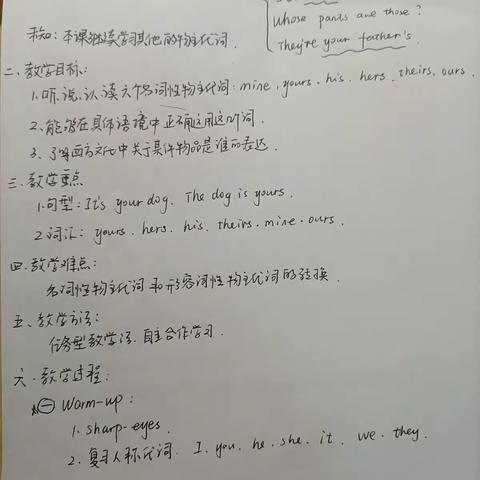 Whose pants are those?
They're your father's.
本课继续学习其他的物主代词.
二、教学目标:
1.听、说、认读六个名词性物主代词: mine, yours. his. hers. theirs. ours.
2.能够在具体语境中正确运用这些词.
3.了解西方文化中关于某件物品是谁的表达.
三、教学重点
1.句型: It's your dog. The dog is yours.
2.词汇: yours. hers. his. theirs. mine. ours.
四.教学难点:
名词性物主代词和形容词性物主代词的转换.
五、教学方法:
任务型教学法. 自主合作学习.
六.教学过程:
㊀ Warm-up:
1. sharp-eyes.
2. 复习人称代词. I. you. he. she. it. we. they.